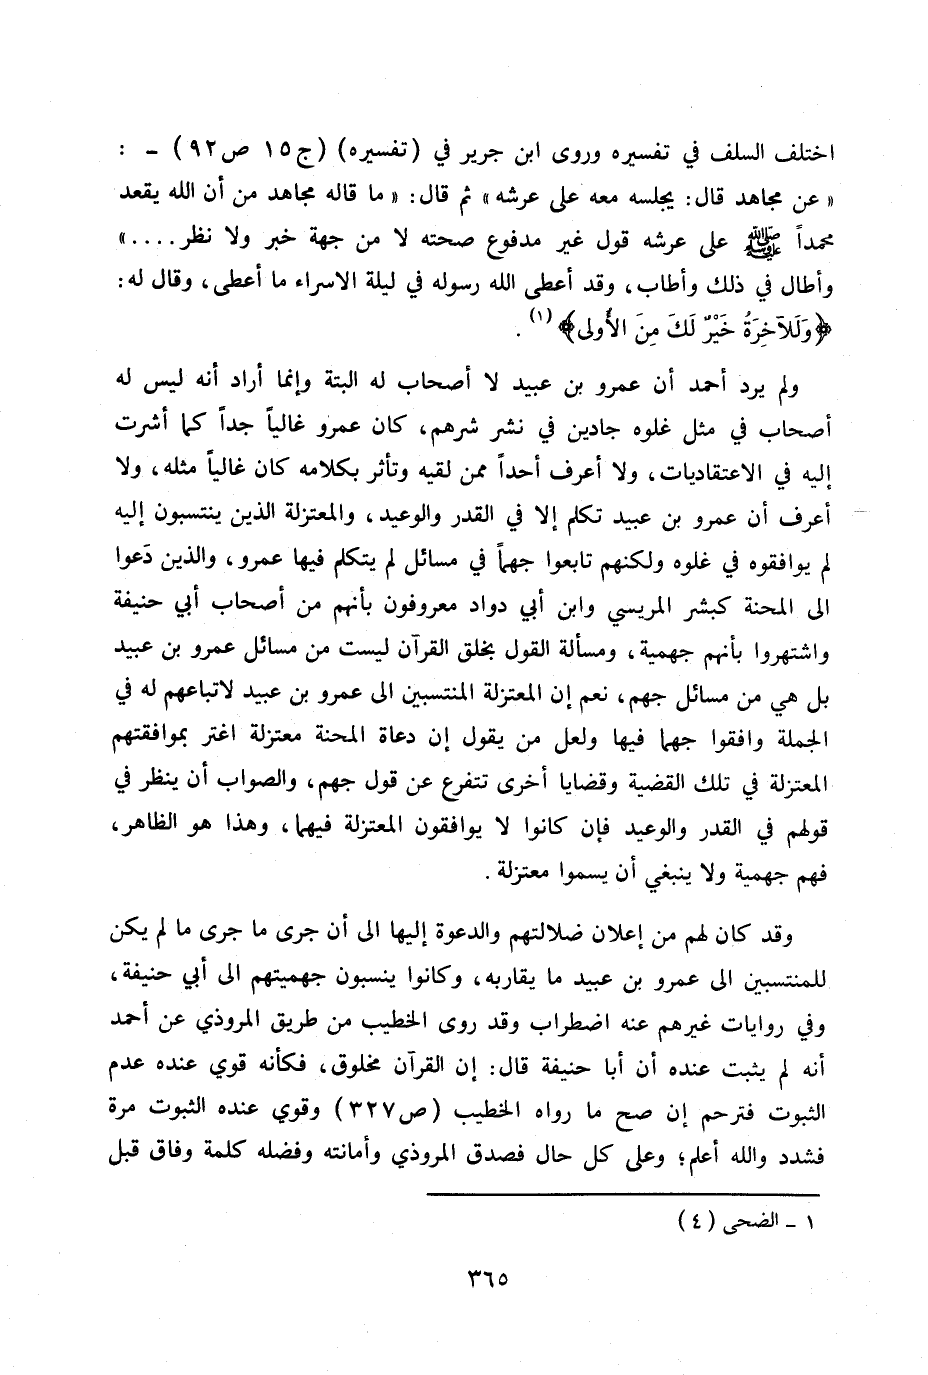 اختلف السلف في تفسيره وروى ابن جرير في (تفسيره) (ج١٥ ص٩٢) ـ :
« عن مجاهد قال: يجلسه معه على عرشه» ثم قال: « ما قاله مجاهد من أن الله يقعد
محمداً ﷺ على عرشه قول غير مدفوع صحته لا من جهة خبر ولا نظر....»
وأطال في ذلك وأطاب، وقد أعطى الله رسوله في ليلة الاسراء ما أعطى، وقال له:
﴿وَلَلآخِرَةُ خَيْرٌ لَكَ مِنَ الأُولى﴾ (١) .
ولم يرد أحمد أن عمرو بن عبيد لا أصحاب له البتة وإنما أراد أنه ليس له
أصحاب في مثل غلوه جادين في نشر شرهم، كان عمرو غالياً جداً كما أشرت
إليه في الاعتقاديات، ولا أعرف أحداً ممن لقيه وتأثر بكلامه كان غالياً مثله، ولا
أعرف أن عمرو بن عبيد تكلم إلا في القدر والوعيد، والمعتزلة الذين ينتسبون إليه
لم يوافقوه في غلوه ولكنهم تابعوا جهماً في مسائل لم يتكلم فيها عمرو، والذين دَعوا
الى المحنة كبشر المريسي وابن أبي دواد معروفون بأنهم من أصحاب أبي حنيفة
واشتهروا بأنهم جهمية، ومسألة القول بخلق القرآن ليست من مسائل عمرو بن عبيد
بل هي من مسائل جهم، نعم إن المعتزلة المنتسبين الى عمرو بن عبيد لاتباعهم له في
الجملة وافقوا جهما فيها ولعل من يقول إن دعاة المحنة معتزلة اغتر بموافقتهم
المعتزلة في تلك القضية وقضايا أخرى تتفرع عن قول جهم، والصواب أن ينظر في
قولهم في القدر والوعيد فإن كانوا لا يوافقون المعتزلة فيهما، وهذا هو الظاهر،
فهم جهمية ولا ينبغي أن يسموا معتزلة .
وقد كان لهم من إعلان ضلالتهم والدعوة إليها الى أن جرى ما جرى ما لم يكن
للمنتسبين الى عمرو بن عبيد ما يقاربه، وكانوا ينسبون جهميتهم الى أبي حنيفة،
وفي روايات غيرهم عنه اضطراب وقد روى الخطيب من طريق المروذي عن أحمد
أنه لم يثبت عنده أن أبا حنيفة قال: إن القرآن مخلوق، فكأنه قوي عنده عدم
الثبوت فترحم إن صح ما رواه الخطيب (ص٣٢٧) وقوي عنده الثبوت مرة
فشدد والله أعلم؛ وعلى كل حال فصدق المروذي وأمانته وفضله كلمة وفاق قبل
١ ـ الضحى (٤)
٣٦٥